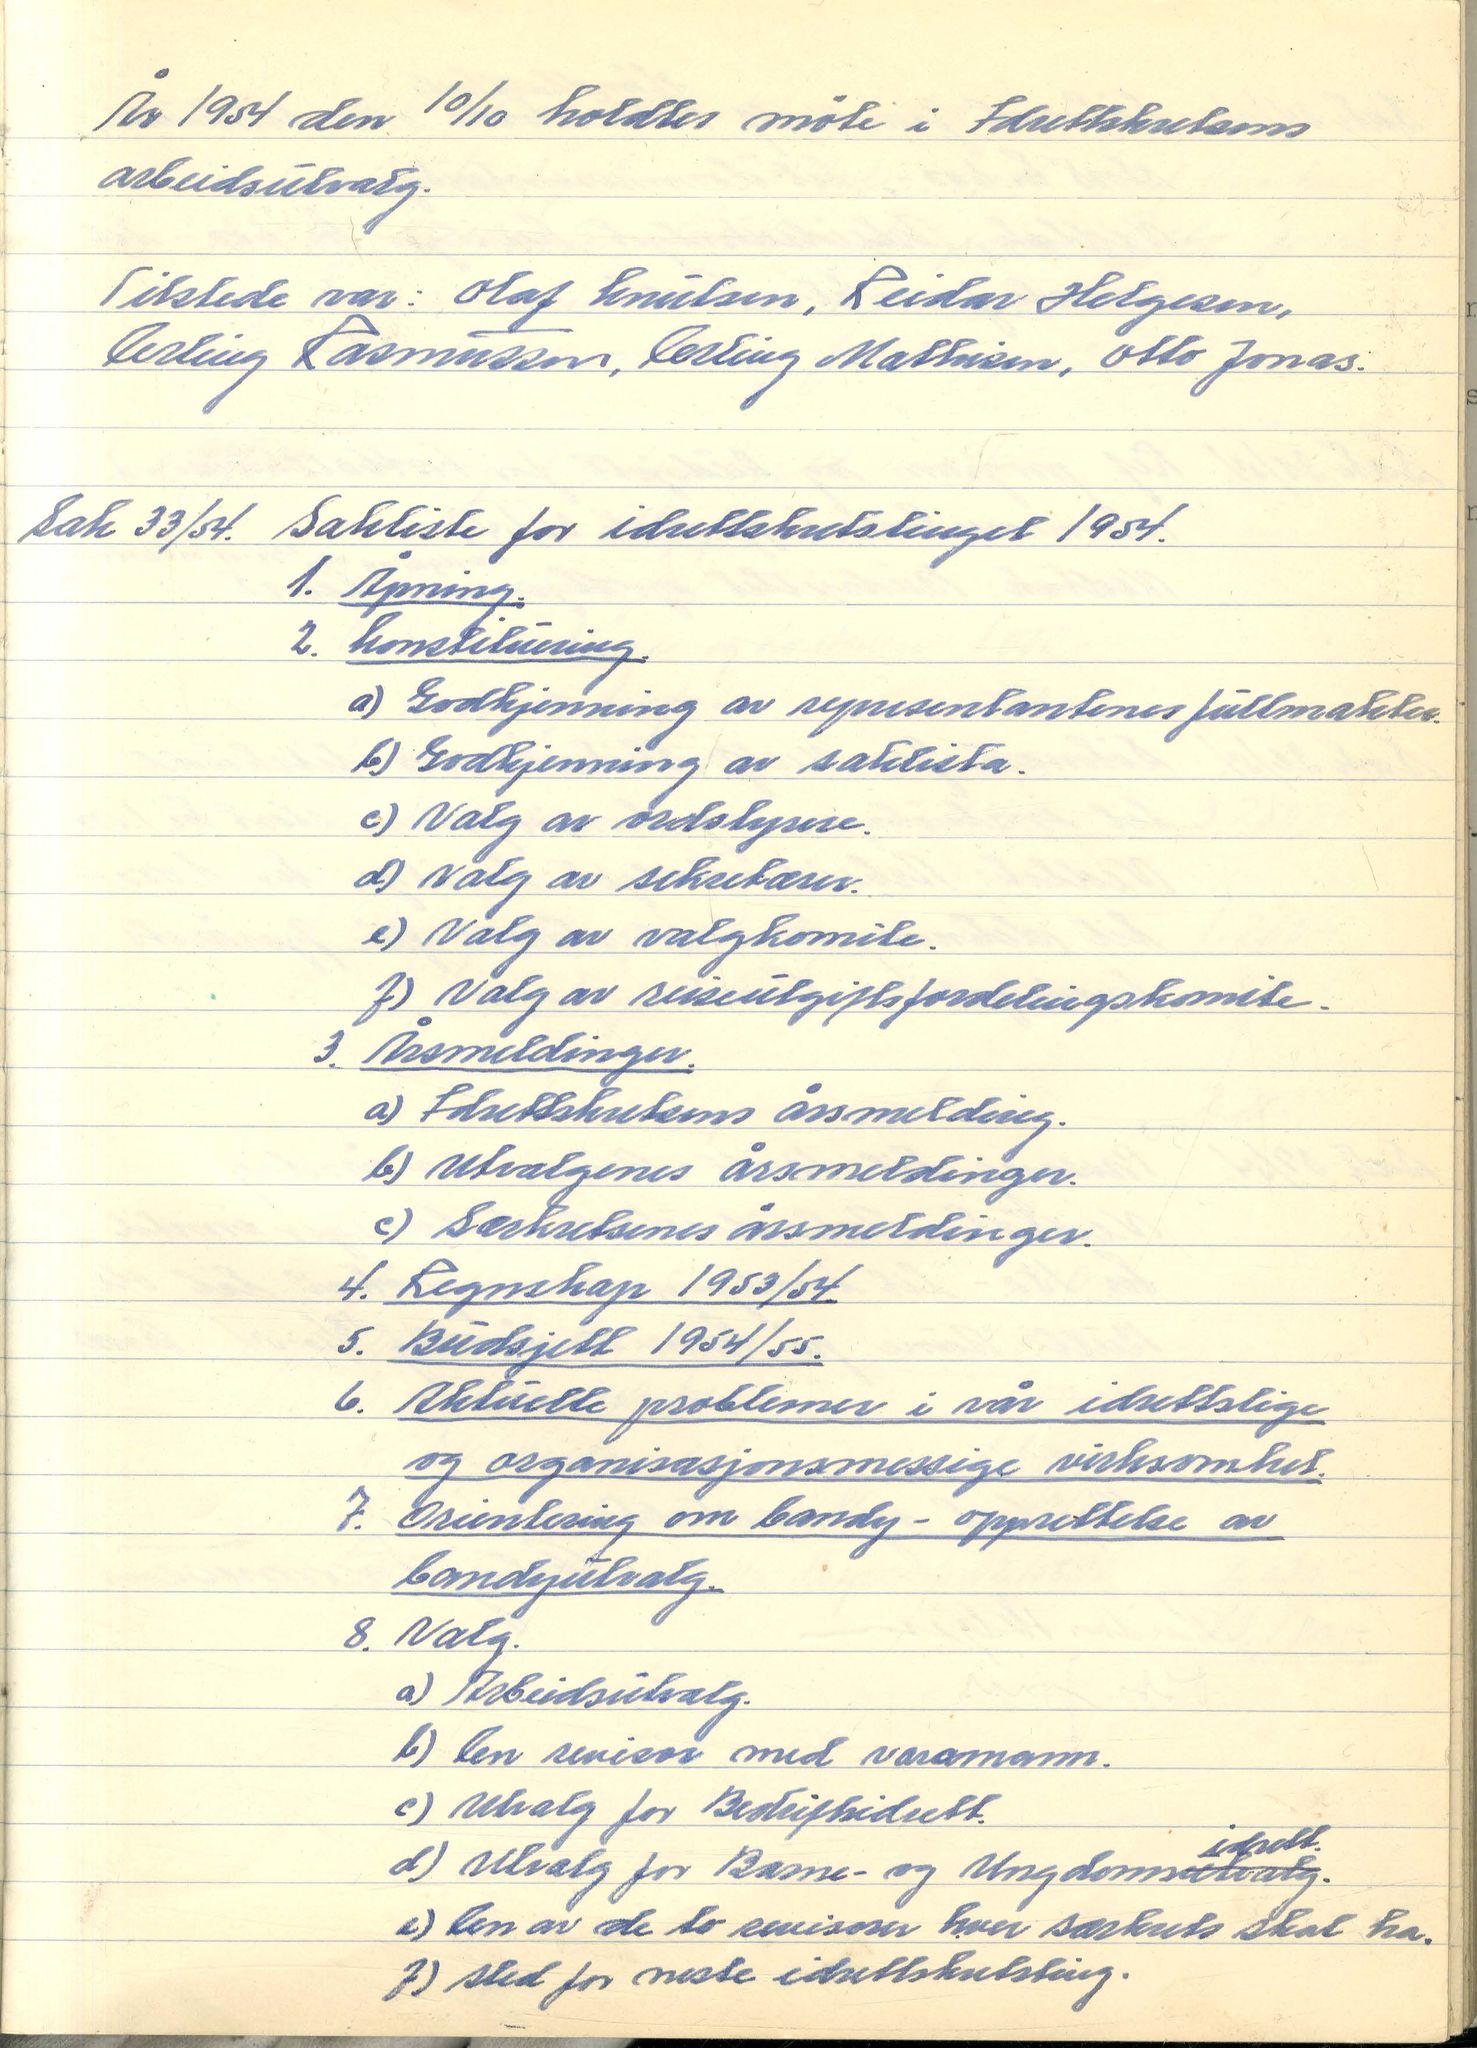 År 1954 den 10/10 holdtes möte i Idrettskretsens
arbeidsutvalg.
Tilstede var: Olaf Knutsen, Reidar Helgesen,
Erling Rasmussen, Erling Mathisen, Otto Jonas.
Sak 33/54. Sakliste for idrettskretstinget 1954.
1. Åpning.
2. Konstituering.
a) Godkjenning av representantenes fullmakter.
b) Godkjenning av saklista.
c) Valg av ordstyrere.
d) Valg av sekretærer.
e) Valg av valgkomite.
f) Valg av reiseutgiftsfordelingskomite.
3. Årsmeldinger.
a) Idrettskretsens årsmelding.
b) Utvalgenes årsmeldinger.
c) Særkretsenes årsmeldinger.
4. Regnskap 1953/54
5. Budsjett 1954/55.
6. Aktuelle problemer i vår idrettslige
og organisasjonsmessige virksomhet.
7. Orientering om bandy - opprettelse av
bandyutvalg.
8. Valg.
a) Arbeidsutvalg.
b) En revisor med varamann.
c) Utvalg for Bedriftsidrett.
d) Utvalg for Barne- og Ungdomsutvalg. idrett.
e) En av de to revisorer hver særkrets skal ha.
f) Sted for neste idrettskretsting.